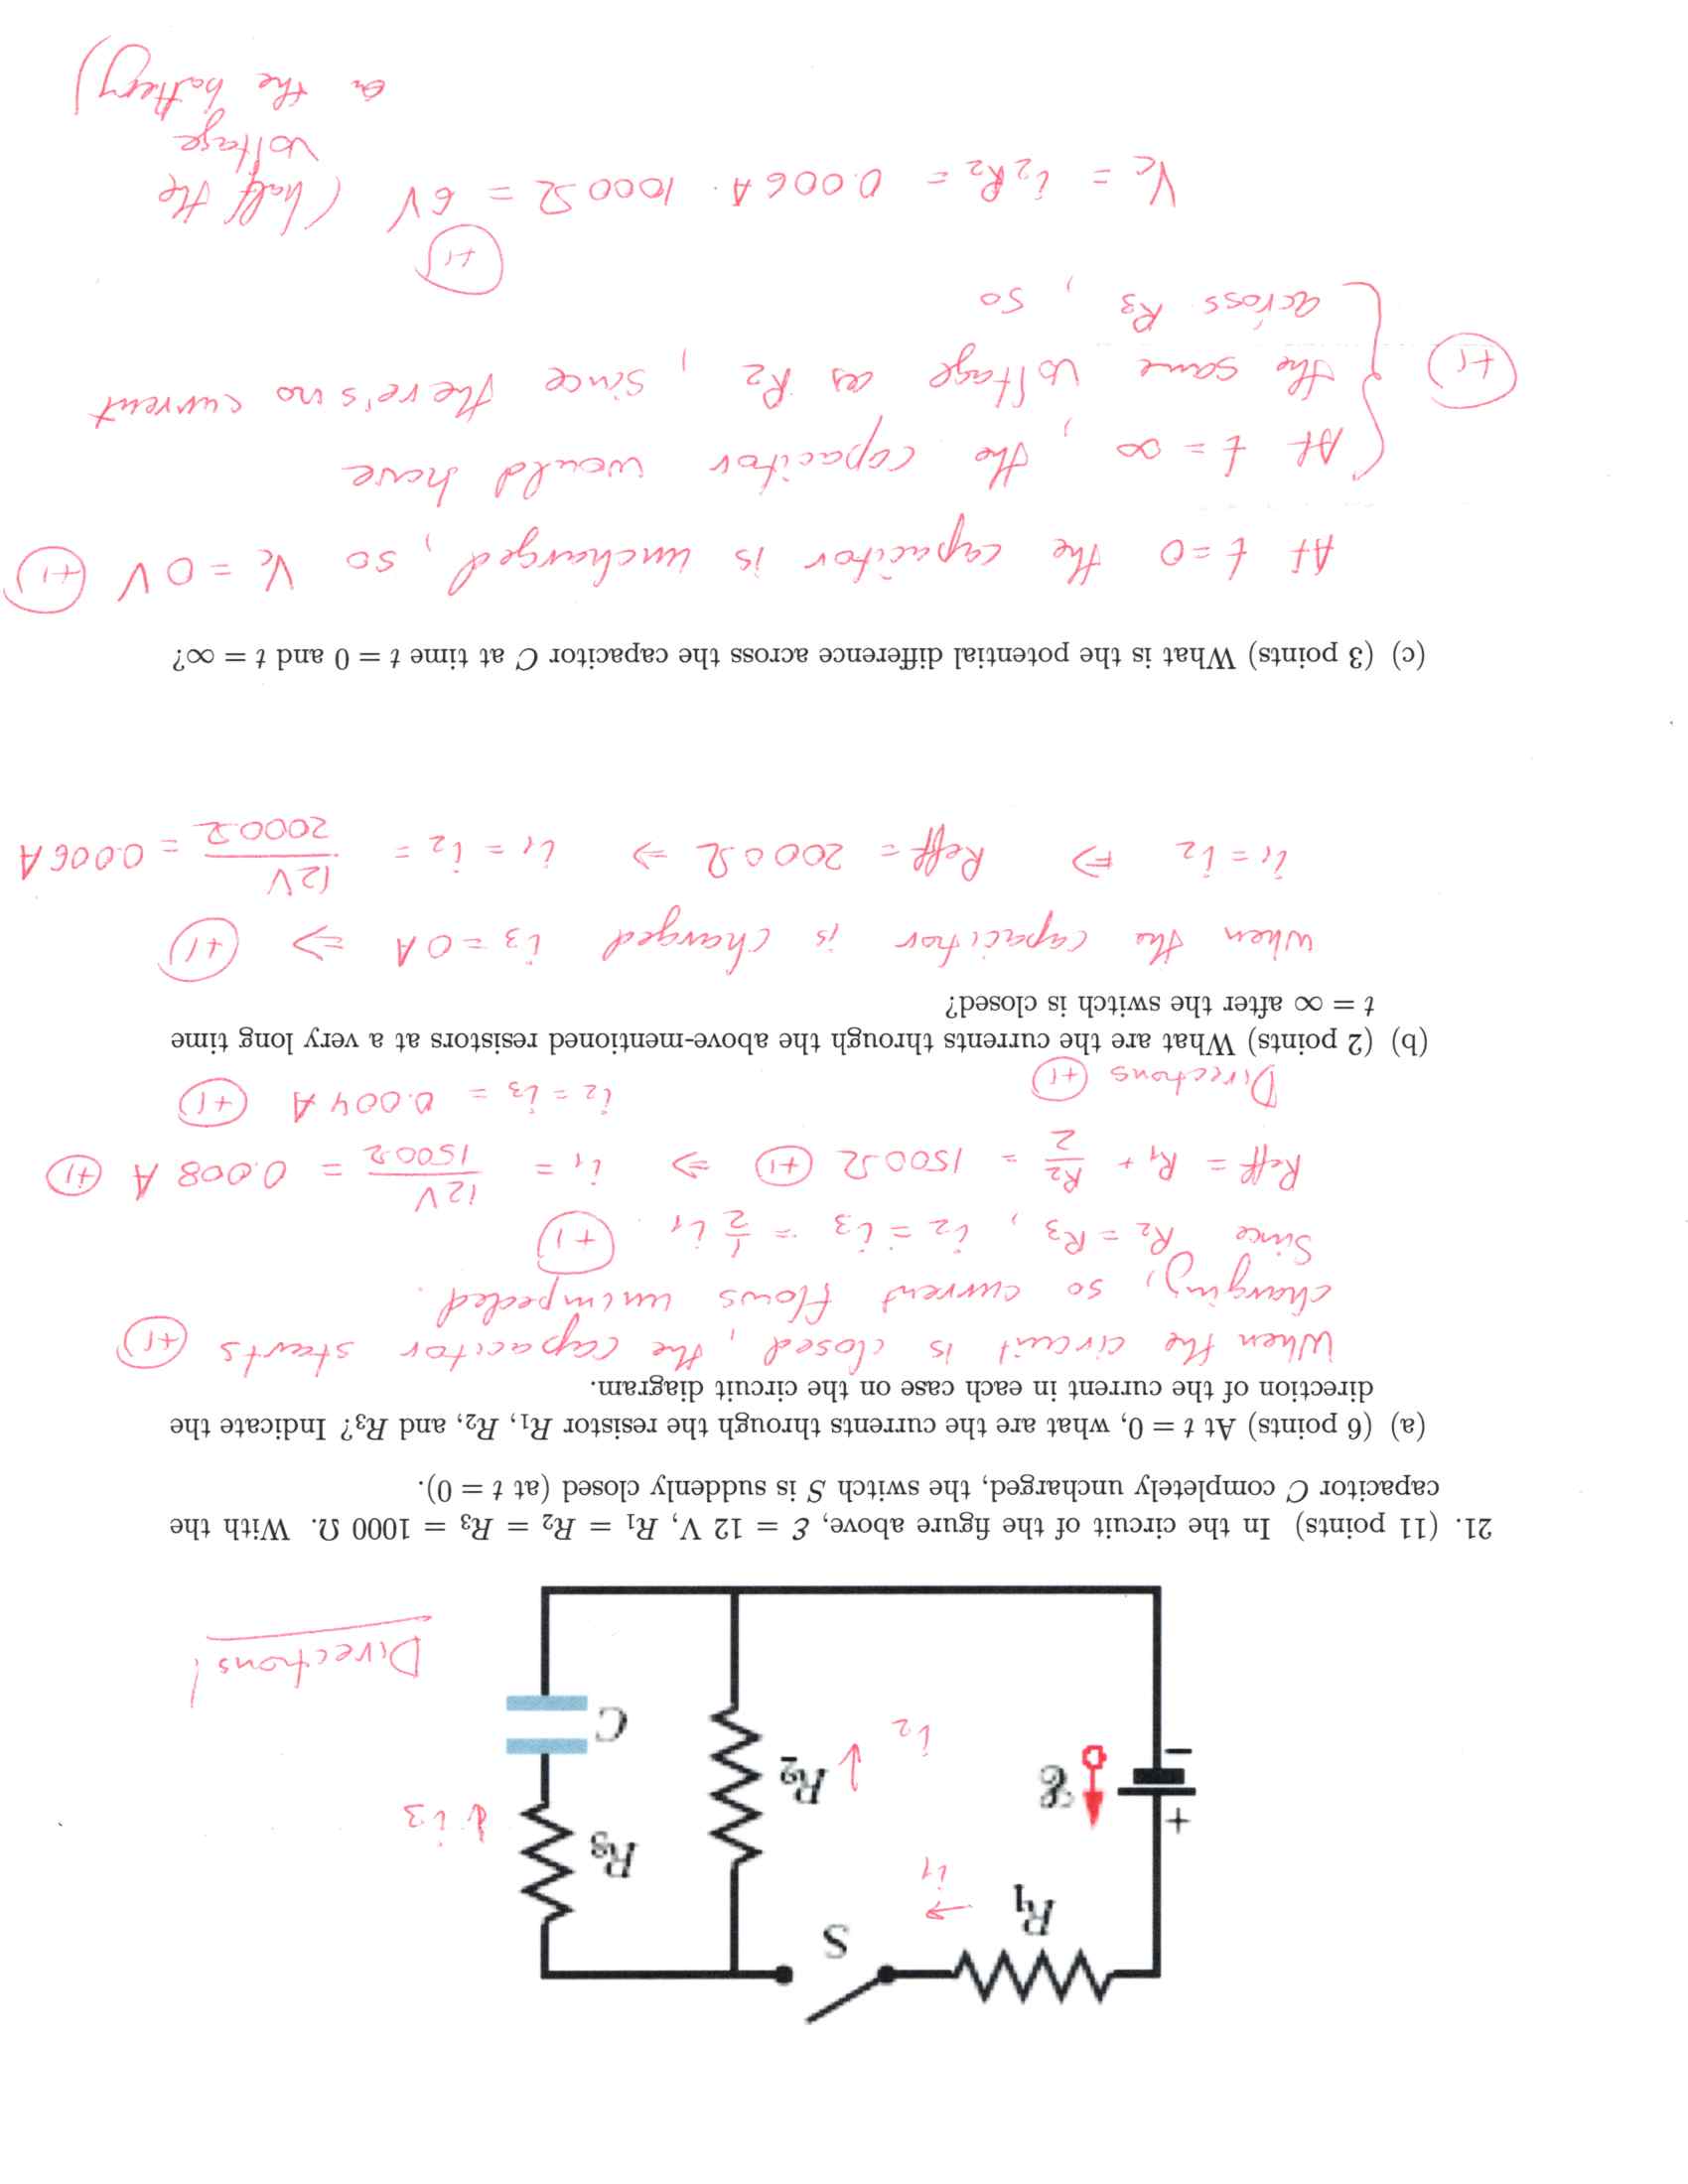 S
R1
→
i1
R3
↓ i3
+
ℰ
−
↓ R2
i2
C
Directions!
21. (11 points) In the circuit of the figure above, ℰ = 12 V, R1 = R2 = R3 = 1000 Ω. With the
capacitor C completely uncharged, the switch S is suddenly closed (at t = 0).
(a) (6 points) At t = 0, what are the currents through the resistor R1, R2, and R3? Indicate the
direction of the current in each case on the circuit diagram.
When the circuit is closed, the capacitor starts +1
charging, so current flows unimpeded.
Since R2 = R3, i2 = i3 = 1/2 i1. +1
Reff = R1 + R2/2 = 1500 Ω +1 ⇒ i1 = 12V/1500Ω = 0.008 A +1
i2 = i3 = 0.004 A +1
Directions +1
(b) (2 points) What are the currents through the above-mentioned resistors at a very long time
t = ∞ after the switch is closed?
When the capacitor is charged i3 = 0 A ⇒ +1
i1 = i2 ⇒ Reff = 2000 Ω ⇒ i1 = i2 = 12V/2000Ω = 0.006 A
(c) (3 points) What is the potential difference across the capacitor C at time t = 0 and t = ∞?
At t=0 the capacitor is uncharged, so Vc = 0 V +1
At t = ∞, the capacitor would have
+1 the same voltage as R2, since there's no current
across R3, so
+1
Vc = i2R2 = 0.006 A · 1000 Ω = 6 V (half the
voltage
on the battery)